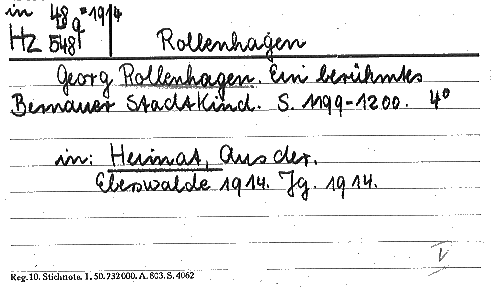 in 48g=1914
Hz 548 Rollenhagen
Georg Rollenhagen. Ein berühmtes
Bernauer Stadtkind. S. 1199-1200. 4°
in: Heimat, Aus der.
Eberswalde 1914. Jg. 1914.
V
Reg. 10. Stichnote. 1. 50. 732000. A. 803. S. 4062